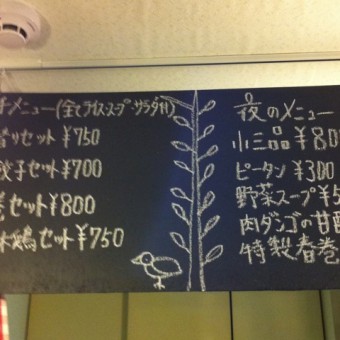 チメニュー(全てライス・スープ・サラダ付)
替りセット¥750
餃子セット¥700
セット¥800
鶏セット¥750
夜のメニュー
小三品¥80
ピータン¥300
野菜スープ¥5
肉ダンゴの甘酢
特製春巻